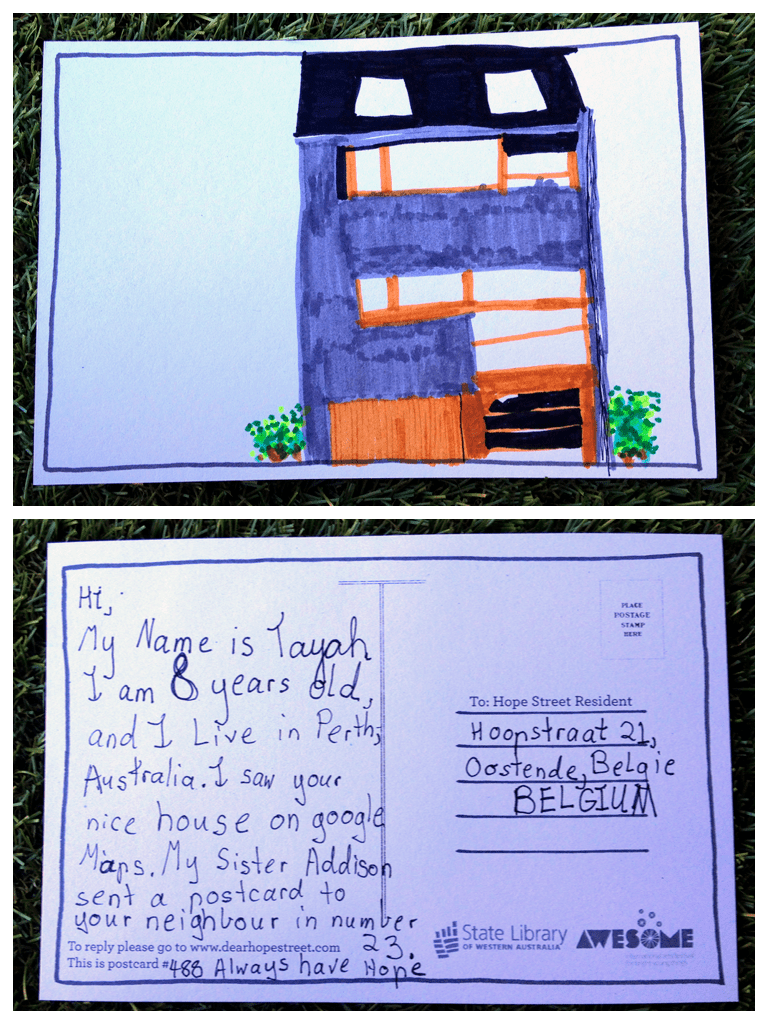 Hi,
My Name is Tayah
I am 8 years old,
and I Live in Perth,
Australia. I saw your
nice house on google
Maps. My Sister Addison
sent a postcard to
your neighbour in number
23.
To reply please go to www.dearhopestreet.com
This is postcard #488 Always have Hope
PLACE
POSTAGE
STAMP
HERE
To: Hope Street Resident
Hoopstraat 21,
Oostende, Belgie
BELGIUM
State Library
OF WESTERN AUSTRALIA
AWESOME